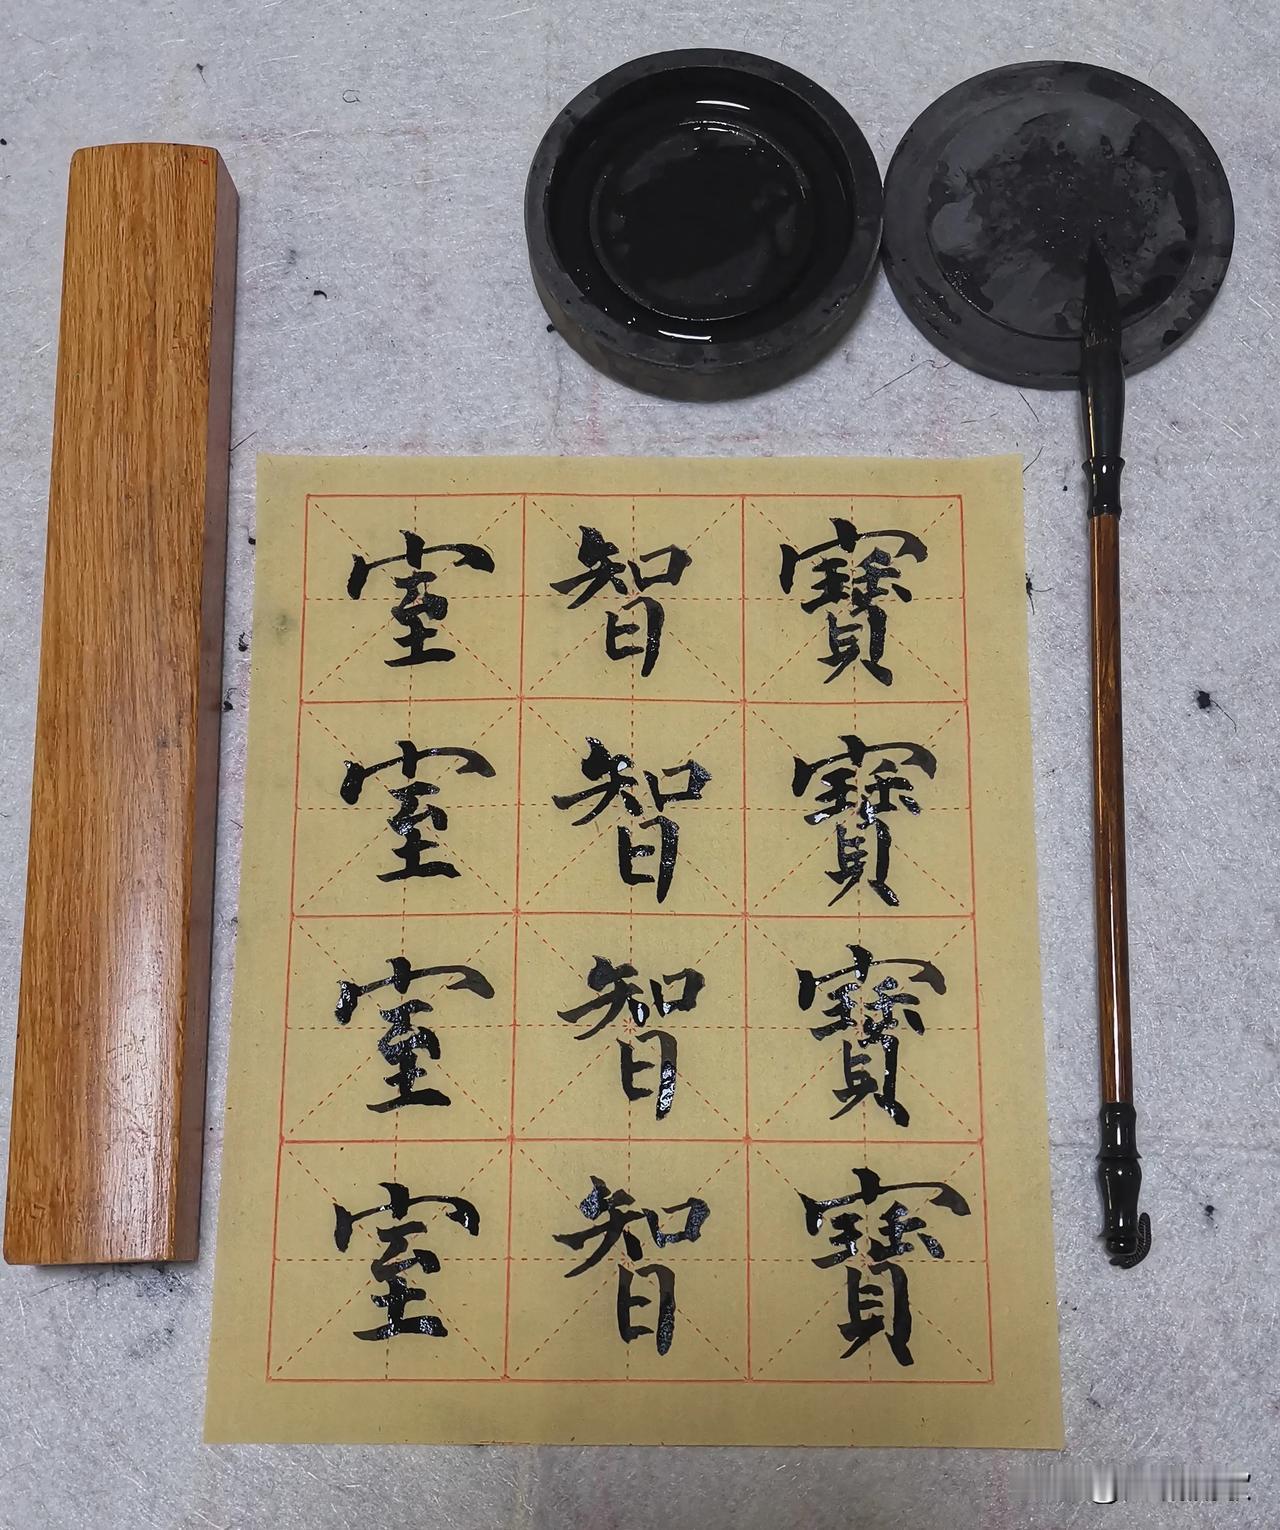 寶寶寶寶
智智智智
室室室室